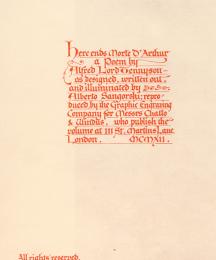 Here ends Morte D'Arthur
a Poem by
Alfred Lord Tennyson
as designed, written out,
and illuminated by
Alberto Sangorski; repro-
duced by the Graphic Engraving
Company for Messrs Chatto
& Windus, who publish the
volume at 111 St. Martins Lane
London. MCMXII.
All rights reserved.